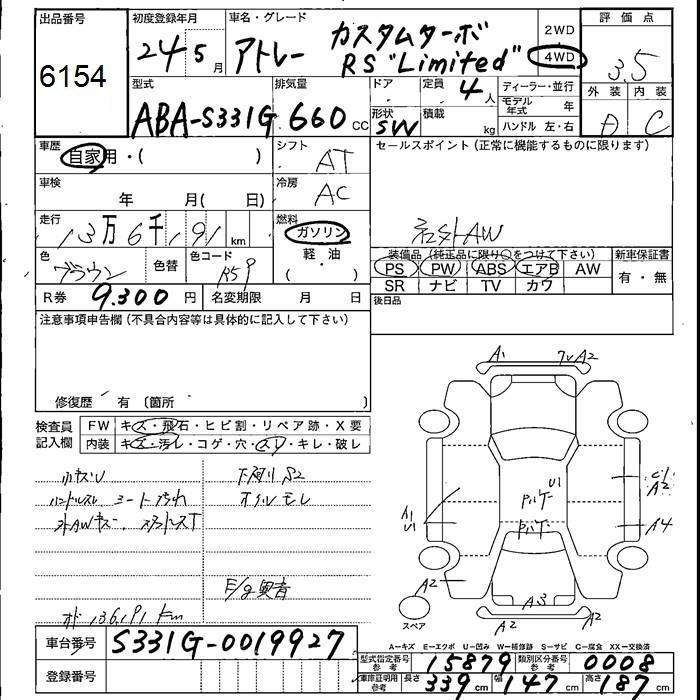 出品番号
6154
初度登録年月
24 5月
車名・グレード
アトレー カスタムターボ
RS "Limited"
2WD
4WD
評価点
3.5
外装 内装
D C
型式
ABA-S331G
排気量
660 CC
ドア
形状
SW
定員
4人
積載
kg
ディーラー・並行
モデル年式 年
ハンドル 左・右
車歴
自家用・( )
シフト
AT
セールスポイント(正常に機能するものに限ります)
社外AW
車検
年 月( 日)
冷房
AC
走行
13万6千191 km
燃料
ガソリン
軽・油
( )
色
ブラウン
色替
色コード
R59
装備品(純正品に限り○をつけて下さい)
PS PW ABS エアB AW
SR ナビ TV カワ
新車保証書
有・無
R券 9.300 円
名変期限 月 日
後日品
注意事項申告欄(不具合内容等は具体的に記入して下さい)
修復歴 有 〔箇所 〕
検査員
記入欄
FW キズ・飛石・ヒビ割・リペア跡・X要
内装 キズ・汚レ・コゲ・穴・スレ・キレ・破レ
小キズU
ハンドルスレ シート汚れ
下廻り S2
オイルモレ
E/g異音
オド 136,191 km
A1
A2
U1
A1
U1
A2
A4
A2
A3
A2
A2
スペア
A-キズ E-エクボ U-凹み W-補修跡 S-サビ C-腐食 XX-交換済
車台番号 S331G-0019927
登録番号
型式指定番号 参考 15879
類別区分番号 参考 0008
車庫証明用 参考 長さ 339 cm 幅 147 cm 高さ 187 cm